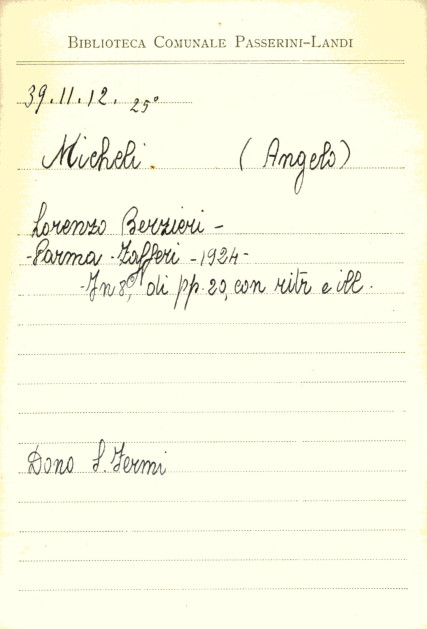 BIBLIOTECA COMUNALE PASSERINI-LANDI
39.11.12. 25°
Micheli. (Angelo)
Lorenzo Berzieri -
- Parma - Zafferi - 1924 -
- In 8°, di pp. 20, con ritr e ill.
Dono S. Fermi